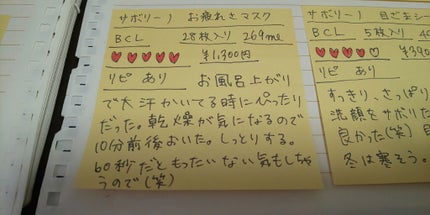 サボリーノ お疲れさマスク
BCL 28枚入り 269mL
♥♥♥♥♥ ¥1,300円
リピ あり お風呂上がり
で大汗かいてる時にぴったり
だった。乾燥が気になるので
10分前後おいた。しっとりする。
60秒だともったいない気もしちゃ
うので(笑)
サボリーノ 目ざまシー
BCL 5枚入り
♥♥♥♥♡
リピ あり
すっきり、さっぱり
洗顔をサボりた
良かった(笑)
冬は寒そう。